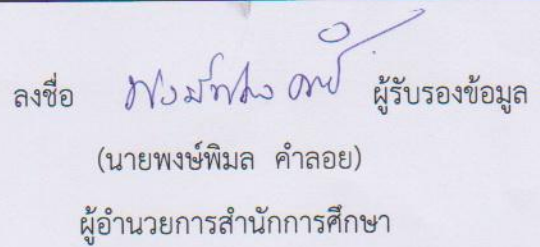 ลงชื่อ ผู้รับรองข้อมูล
(นายพงษ์พิมล คำลอย)
ผู้อำนวยการสำนักการศึกษา